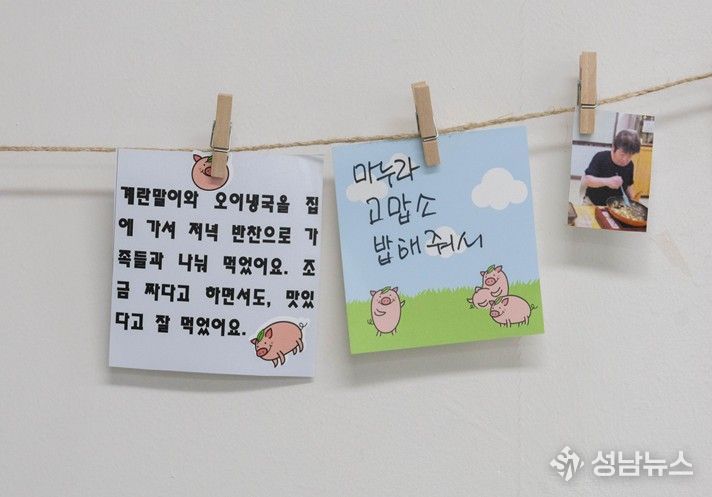 계란말이와 오이냉국을 집
에 가서 저녁 반찬으로 가
족들과 나눠 먹었어요. 조
금 짜다고 하면서도, 맛있
다고 잘 먹었어요.
마누라
고맙소
밥해줘서
성남뉴스